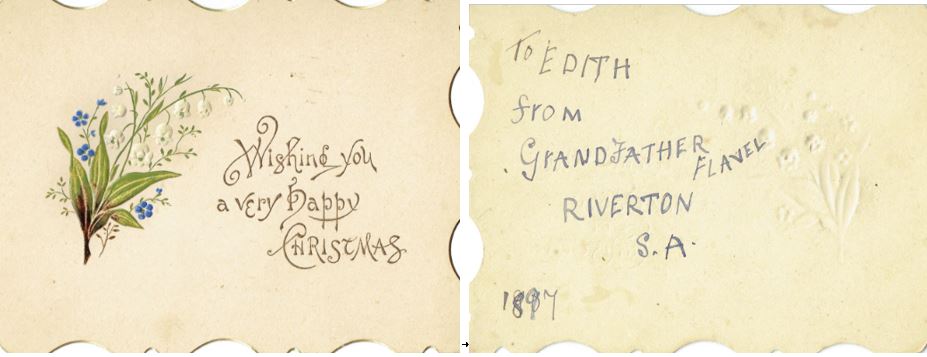 Wishing you
a very happy
CHRISTMAS
To EDITH
from
GrANDFATHER FLAVEL
RIVERTON
S.A.
1897